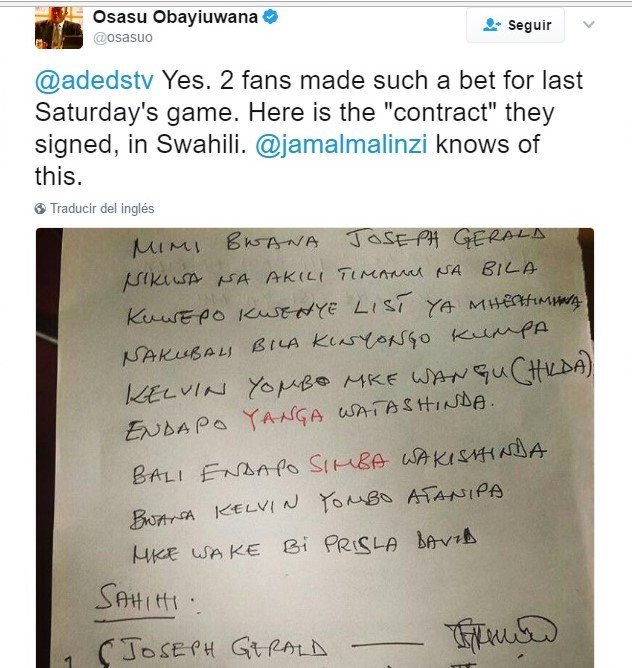 Osasu Obayiuwana
@osasuo
Seguir
@adedstv Yes. 2 fans made such a bet for last
Saturday's game. Here is the "contract" they
signed, in Swahili. @jamalmalinzi knows of
this.
Traducir del inglés
MIMI BWANA JOSEPH GERALD
NIKIWA NA AKILI TIMAMU NA BILA
KUWEPO KWENYE LIST YA MHESHIMIWA
NAKUBALI BILA KINYONGO KUMPA
KELVIN YOMBO MKE WANGU (HILDA)
ENDAPO YANGA WATASHINDA.
BALI ENDAPO SIMBA WAKISHINDA
BWANA KELVIN YOMBO ATANIPA
MKE WAKE BI PRISLA DAVID
SAHIHI.
1 JOSEPH GERALD